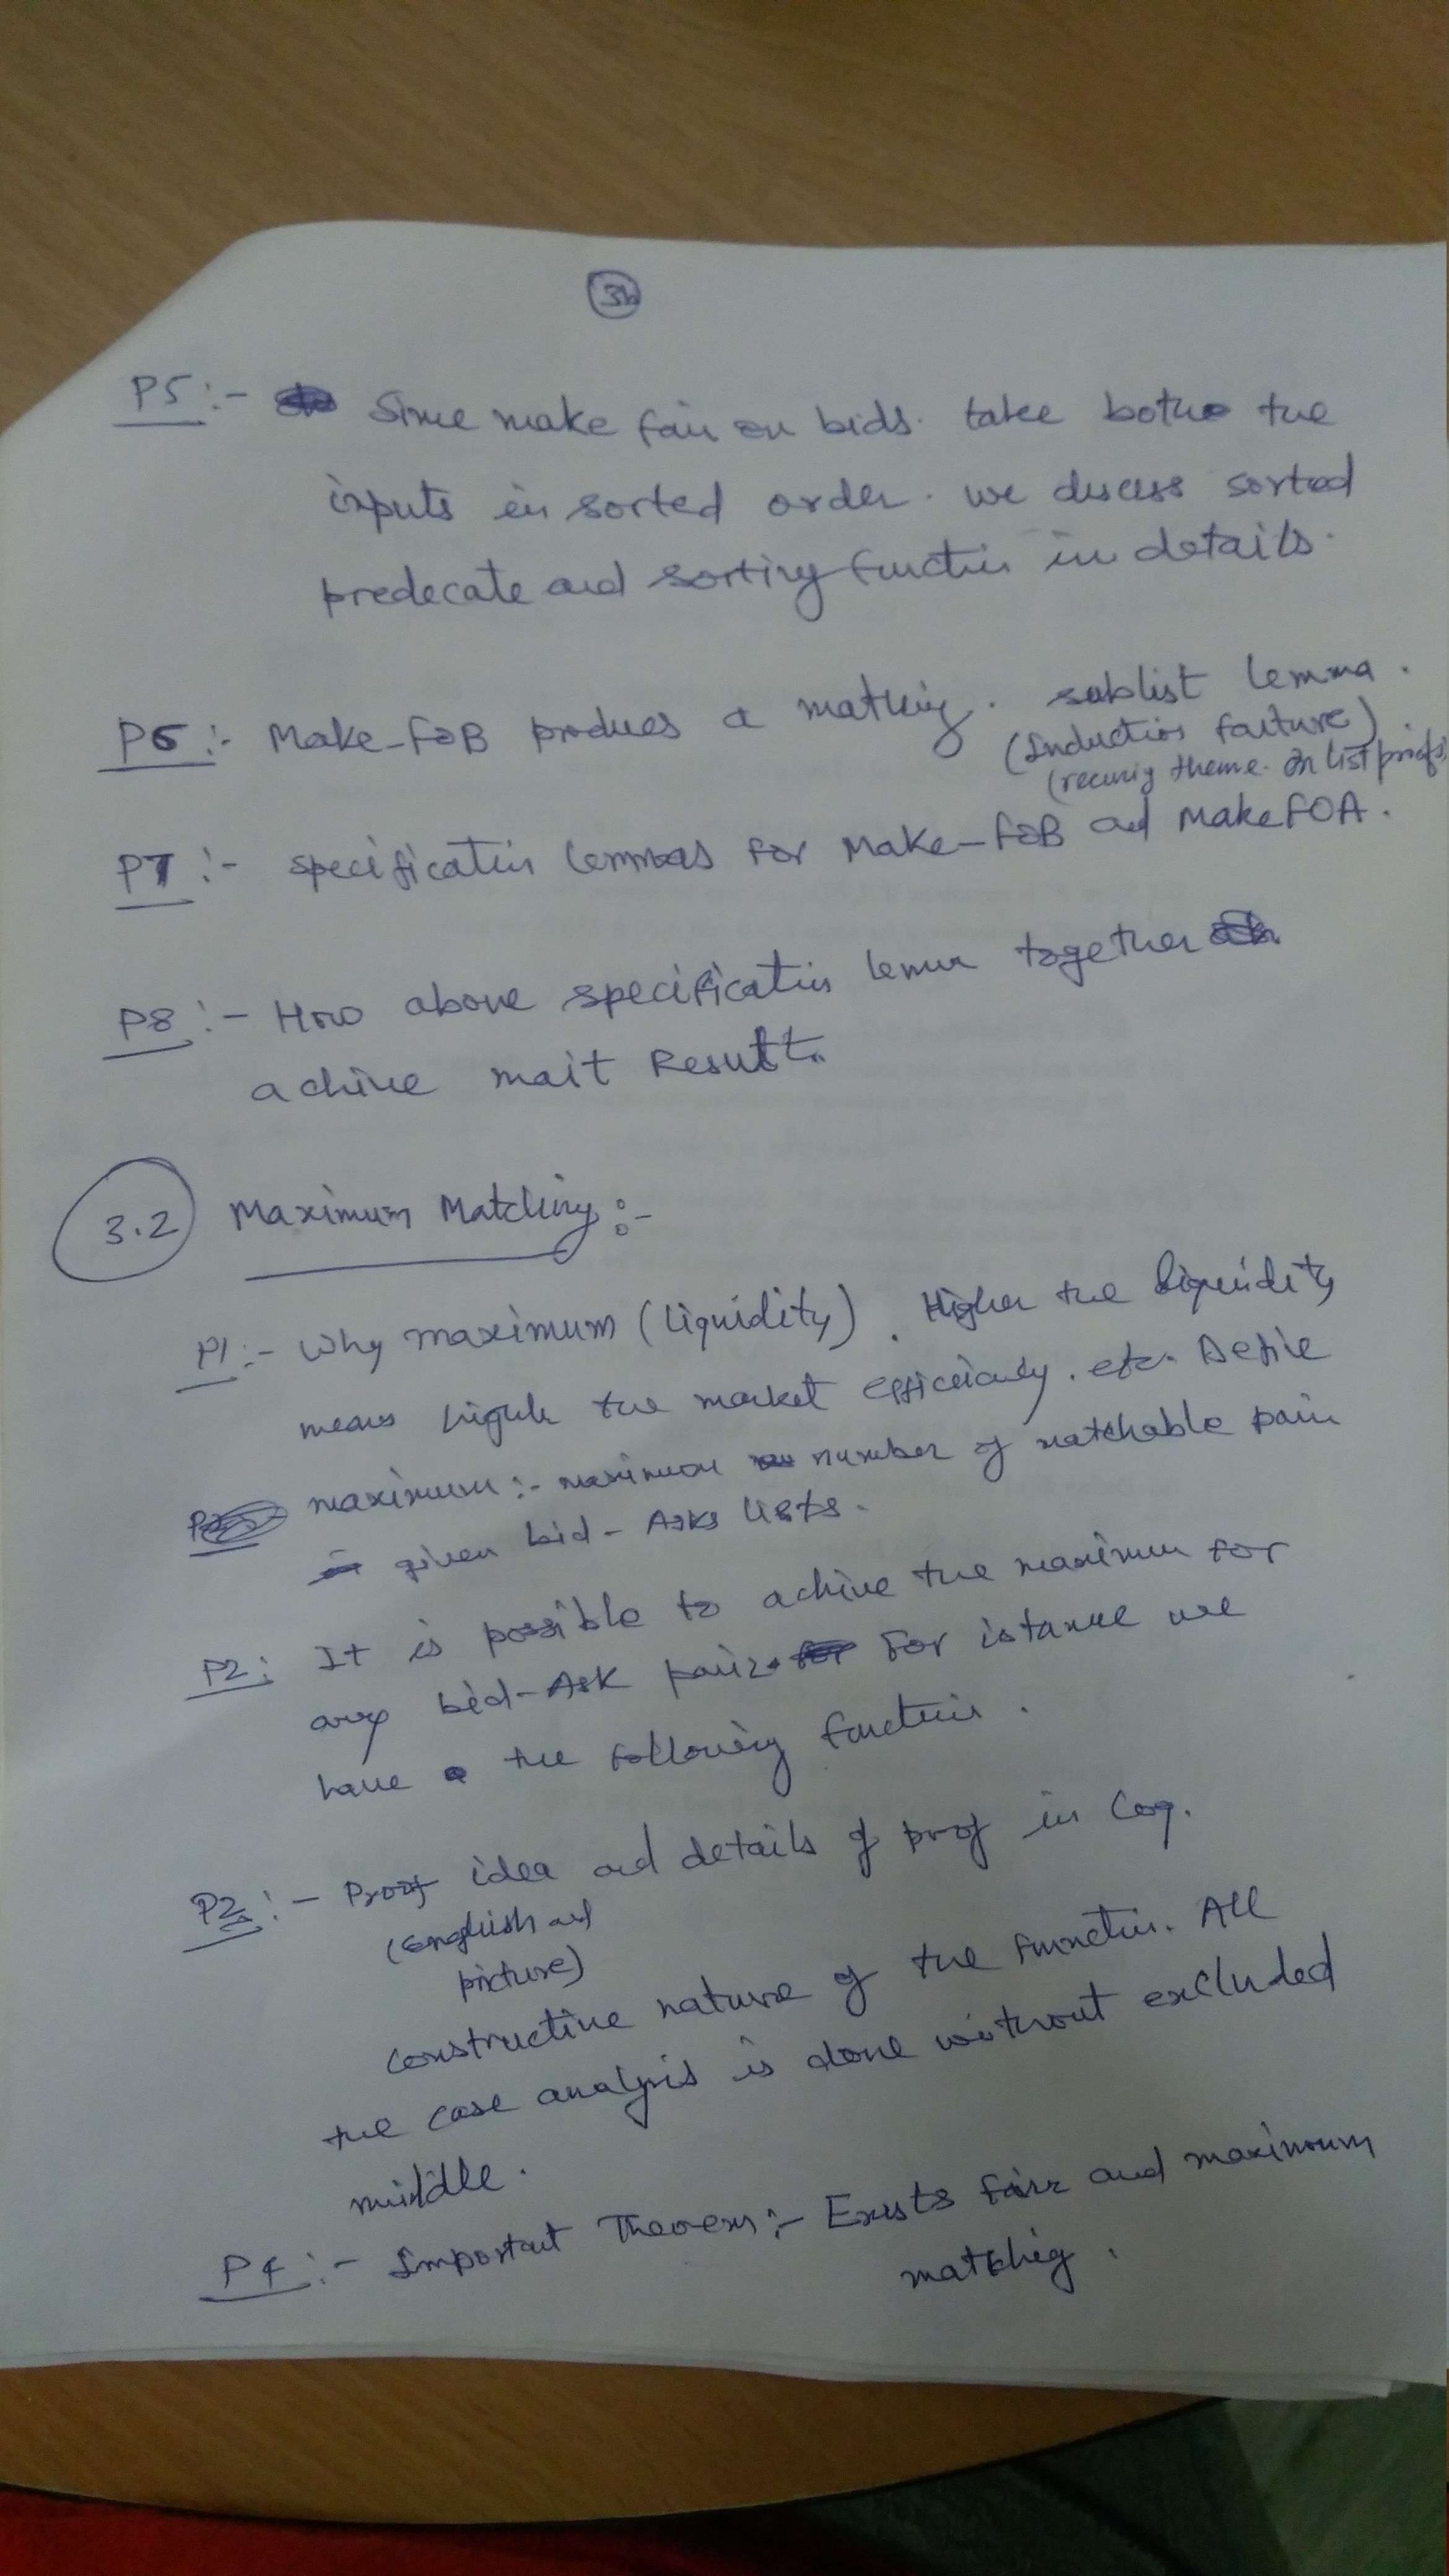 3b
P5:- Since make fair on bids. take both the
inputs in sorted order. we discuss sorted
predecate and sorting function in details.
P6:- Make-FOB produces a matching. sublist lemma.
(Induction failure).
(recurig theme. on list proofs)
P7:- specification lemmas for Make-FOB and MakeFOA.
P8:- How above specification lemma together
achive mait Result.
3.2 Maximum Matching:-
P1:- Why maximum (liquidity). Higher the liquidity
means higher the market efficiency. etc. Define
maximum:- maximum number of matchable pair
given bid-Asks lists.
P2: It is possible to achive the maximum for
any bid-Ask pair. For istance we
have the following function.
P3:- Proof idea and details of proof in Coq.
(English and
picture)
constructive nature of the function. All
the case analysis is done without excluded
middle.
P4:- Important Theorem:- Exists fair and maximum
matching.